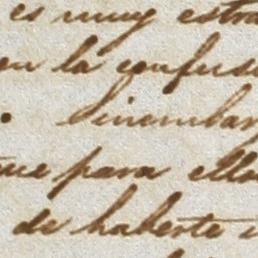 es muy estra
en la confus
. Sinembar
ue para ella
de haberte